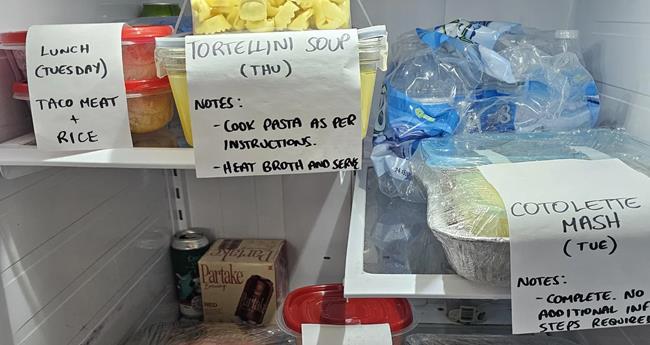 LUNCH
(TUESDAY)
TACO MEAT
+
RICE
TORTELLINI SOUP
(THU)
NOTES:
- COOK PASTA AS PER
INSTRUCTIONS.
- HEAT BROTH AND SERVE
COTOLETTE
MASH
(TUE)
NOTES:
- COMPLETE. NO
ADDITIONAL INF
STEPS REQUIRED
Partake
Brewing
RED